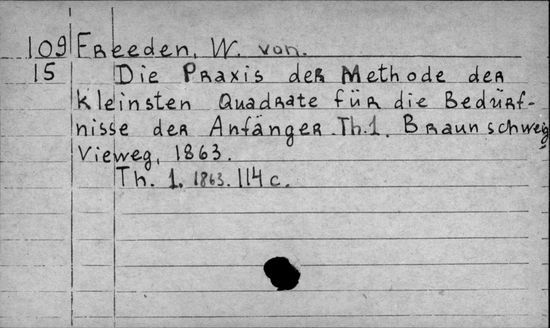 109 Freeden, W. von.
15 Die Praxis der Methode der
kleinsten Quadrate für die Bedürf-
nisse der Anfänger Th.1. Braunschweig
Vieweg, 1863.
Th. 1. 1863. 114 c.